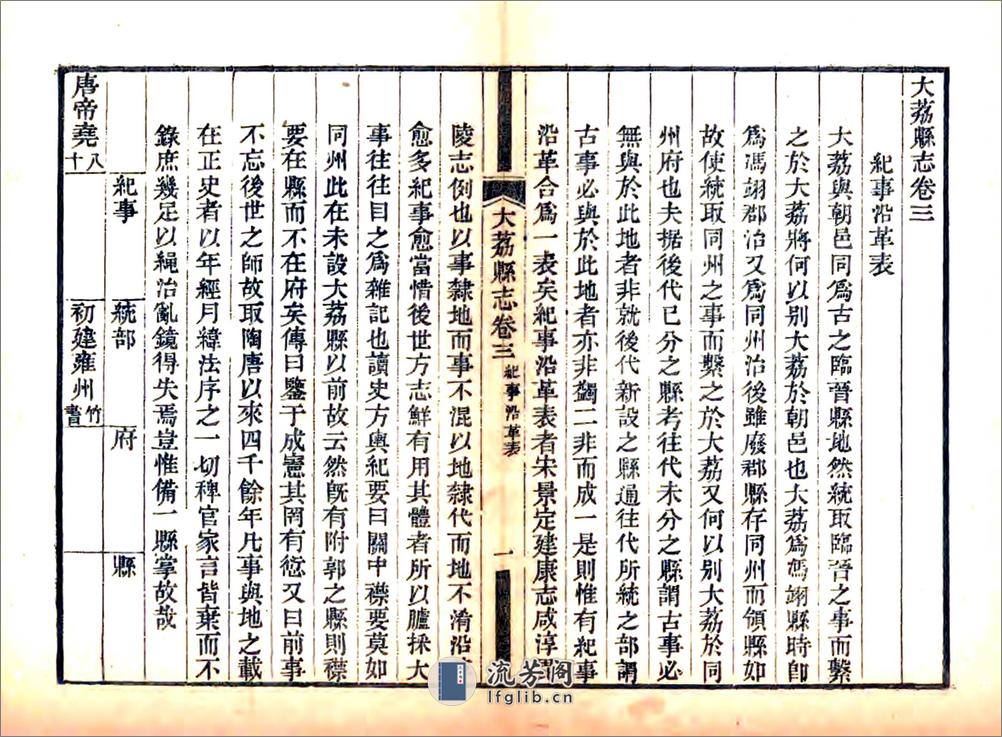 大荔縣志卷三
紀事沿革表
大荔與朝邑同爲古之臨晉縣地然統取臨晉之事而繫
之於大荔將何以別大荔於朝邑也大荔爲馮翊縣時卽
爲馮翊郡治又爲同州治後雖廢郡縣存同州而領縣如
故使統取同州之事而繫之於大荔又何以別大荔於同
州府也夫据後代已分之縣考往代未分之縣謂古事必
無與於此地者非就後代新設之縣通往代所統之部謂
古事必與於此地者亦非蠲二非而成一是則惟有紀事
沿革合爲一表矣紀事沿革表者宋景定建康志咸淳
大荔縣志卷三 紀事沿革表 一
陵志例也以事隸地而事不混以地隸代而地不淆沿
愈多紀事愈當惜後世方志鮮有用其體者所以臚採大
事往往目之爲雜記也讀史方輿紀要曰關中襟要莫如
同州此在未設大荔縣以前故云然旣有附郭之縣則襟
要在縣而不在府矣傳曰鑒于成憲其罔有愆又曰前事
不忘後世之師故取陶唐以來四千餘年凡事與地之載
在正史者以年經月緯法序之一切稗官家言皆棄而不
錄庶幾足以繩治亂鏡得失焉豈惟備一縣掌故哉
紀事 統部 府 縣
唐帝堯八十 初建雍州竹書
流芳阁
lfglib.cn